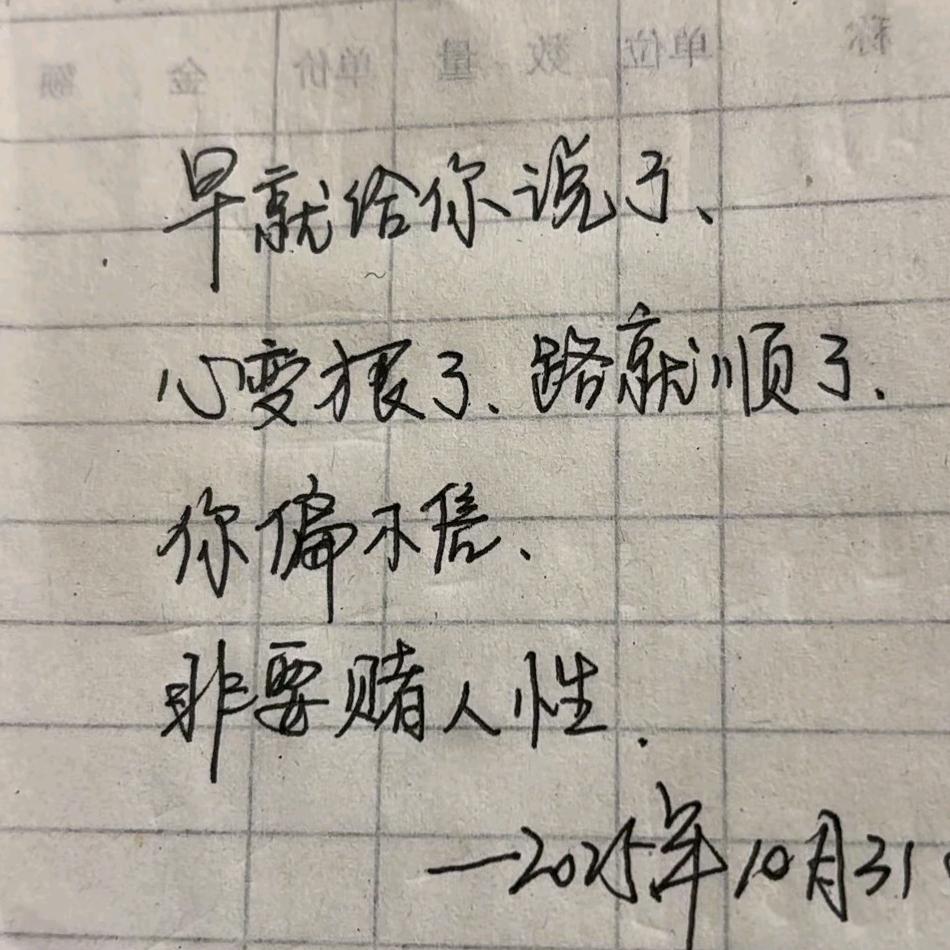 称 单位 数量 单价 金额
早就给你说了、
心变狠了、路就顺了、
你偏不信、
非要赌人性.
—2025年10月31